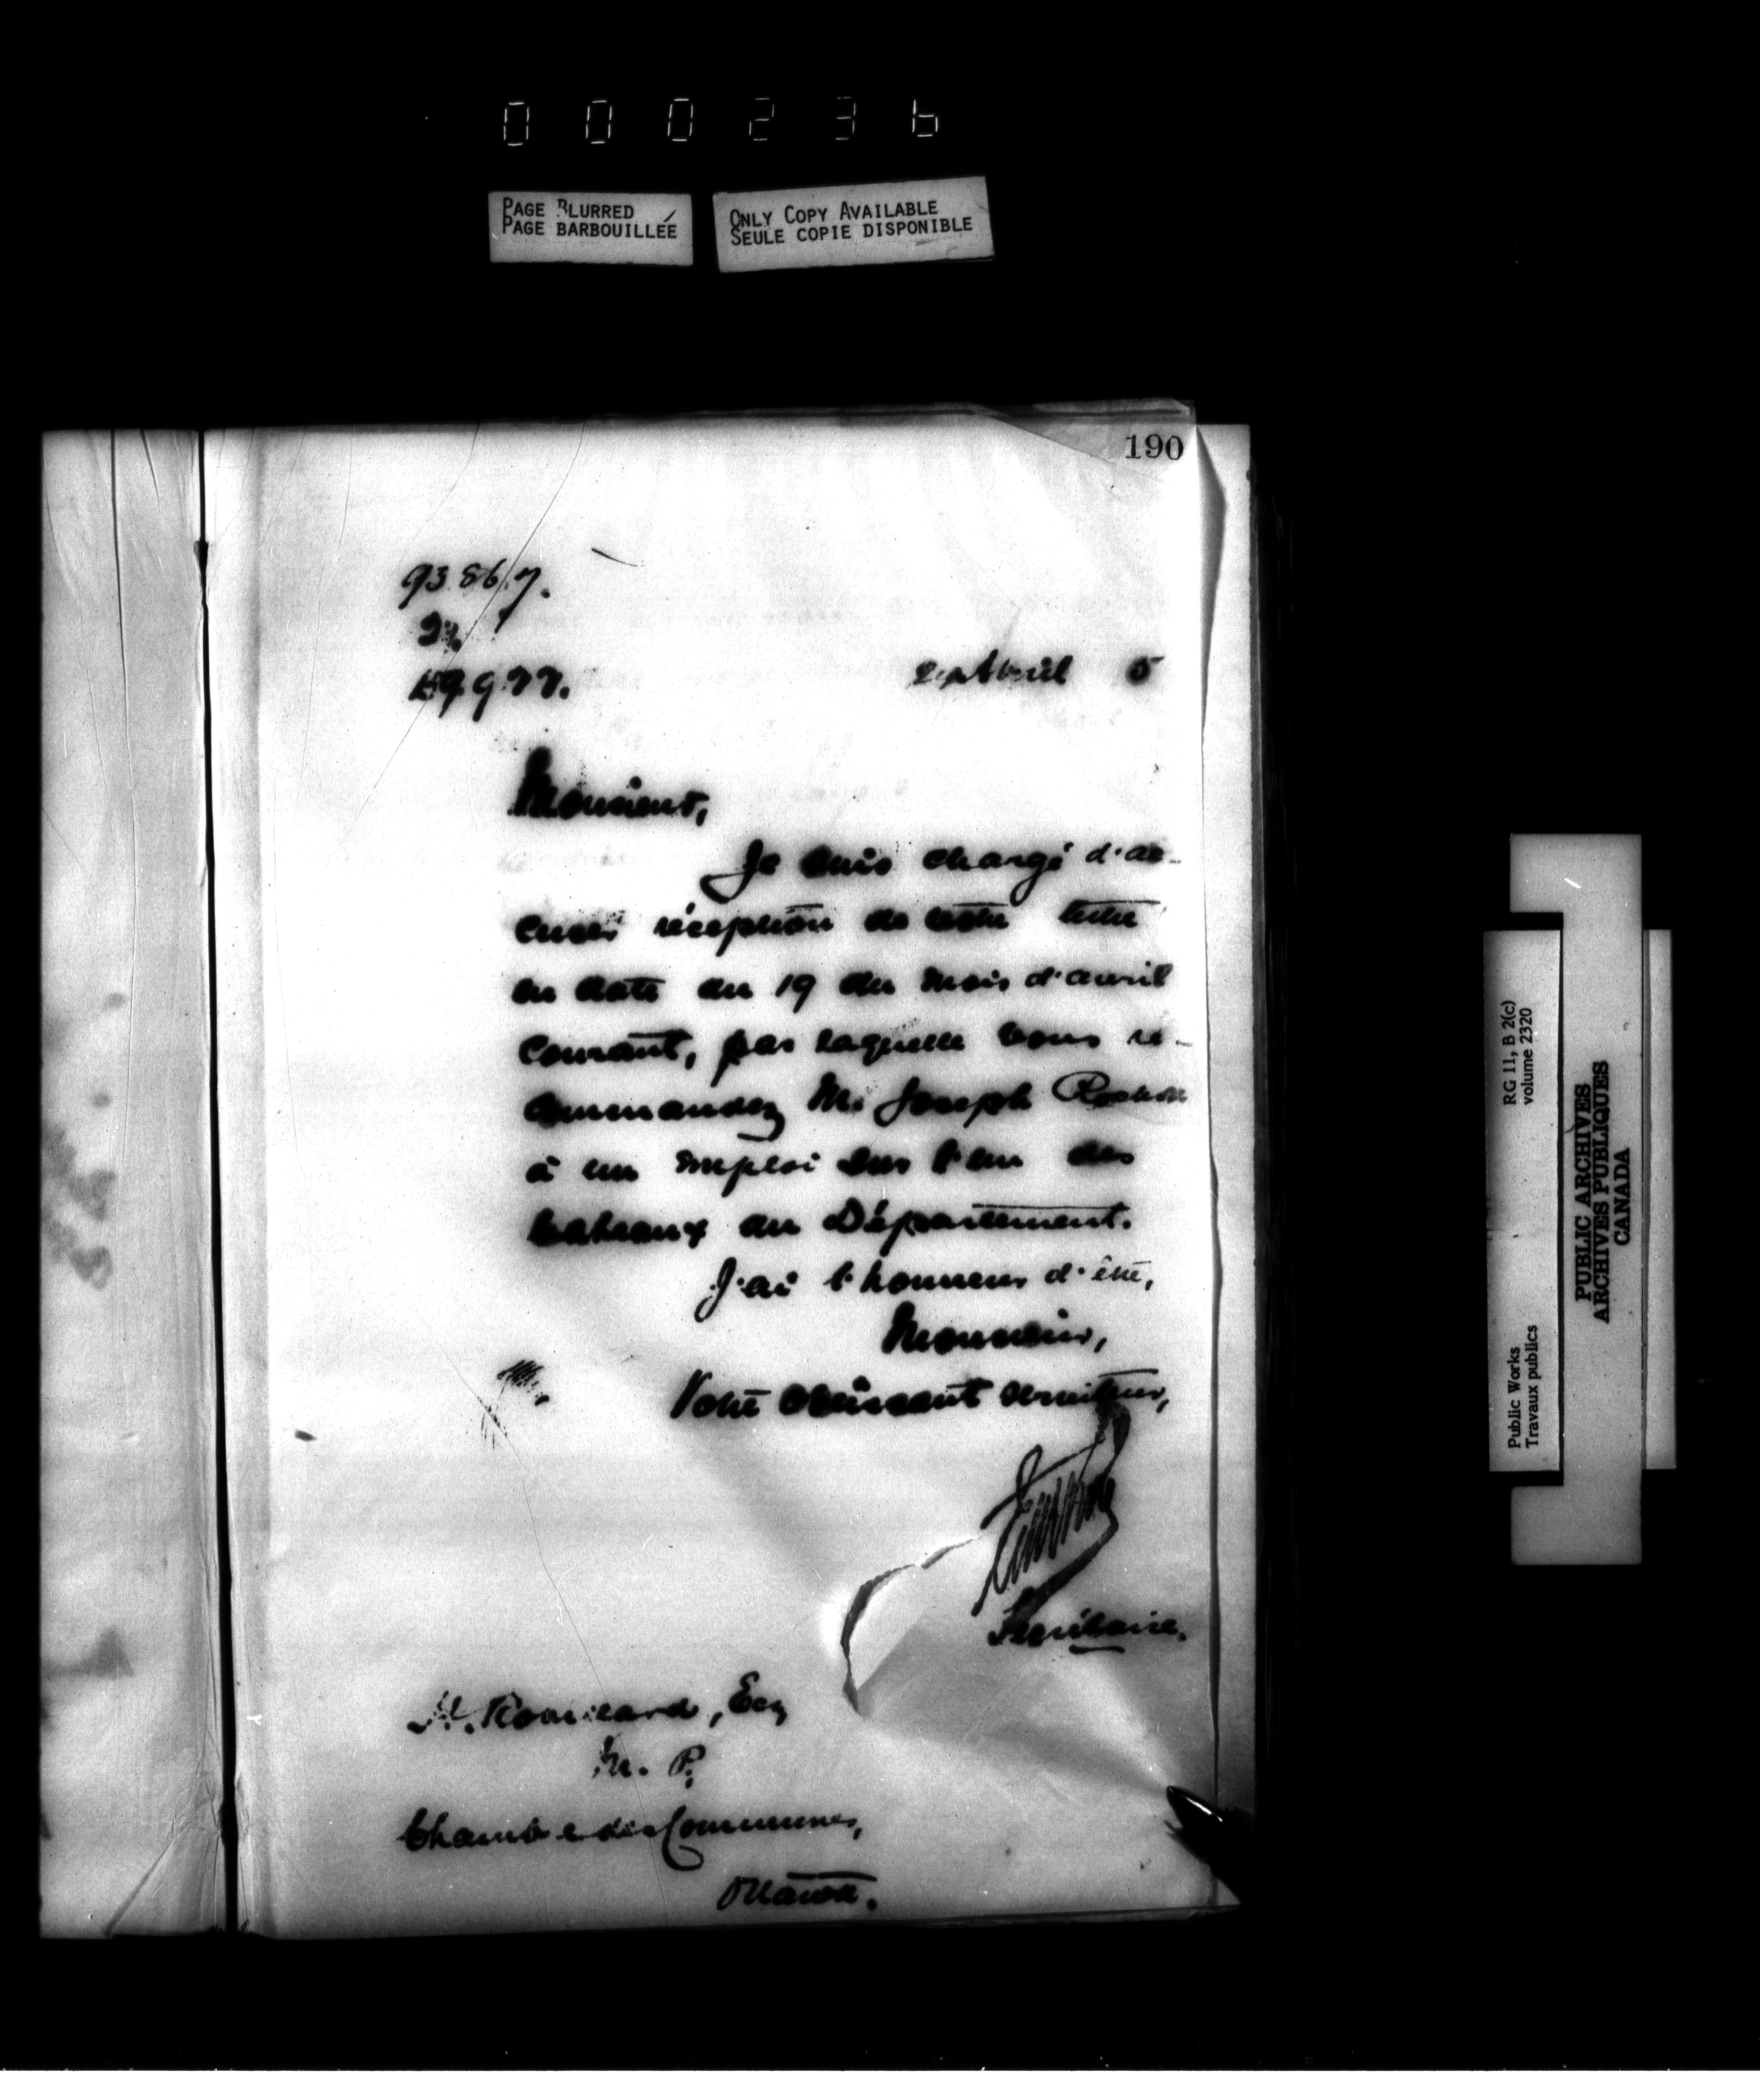 000236
PAGE BLURRED
PAGE BARBOUILLÉE
ONLY COPY AVAILABLE
SEULE COPIE DISPONIBLE
190
93867.
Avril 5
Monsieur,
Je suis chargé d'ac-
cuser réception de votre lettre
en date du 19 du mois d'avril
courant, par laquelle vous re-
commandez M. Joseph Rochon
à un emploi sur l'un des
bateaux du Département.
J'ai l'honneur d'être,
Monsieur,
Votre obéissant serviteur,
Secrétaire.
H. Robillard, Ecq
M. P.
Chambre des Communes,
Ottawa.
RG 11, B 2(c)
volume 2320
Public Works
Travaux publics
PUBLIC ARCHIVES
ARCHIVES PUBLIQUES
CANADA